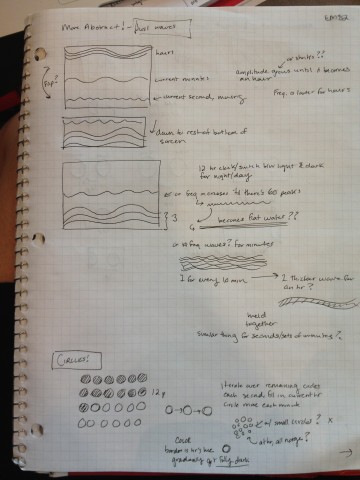 More Abstract! - Just waves
hours
current minutes
current second, moving
Flip?
or shorter??
amplitude grows until it becomes
an hour
Prep a layer for hours
down to rest at bottom of
screen
12 hr clock/switch b/w light & dark
for night/day
or freq increases 'til there's 60 peaks
3
becomes flat water??
or no freq waves? For minutes
1 for every 10 min
1 thicker wave for
an hr?
meld
together
similar thing for seconds/sets of minutes?
CIRCLES!
12
iterate over remaining circles
each second fill in current
circle more each minute
w/ small circles? x
at hr, all merge?
Color
border is hr's hue
gradually get fully dark